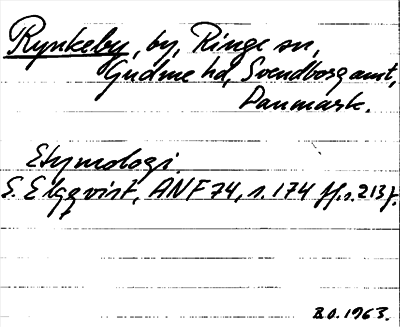 Rynkeby, by, Ringe sn,
Gudme hd, Svendborg amt,
Danmark.
Etymologi.
S. Elqvist, ANF 74, s. 174 ff, s. 213 f.
B.O. 1963.